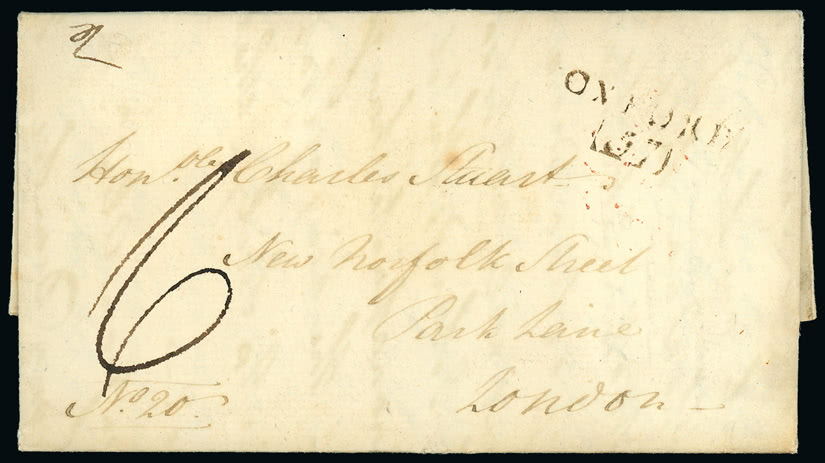 OXFORD
57
Honble Charles Stuart
6
New Norfolk Street
Park Lane
No. 20.
London